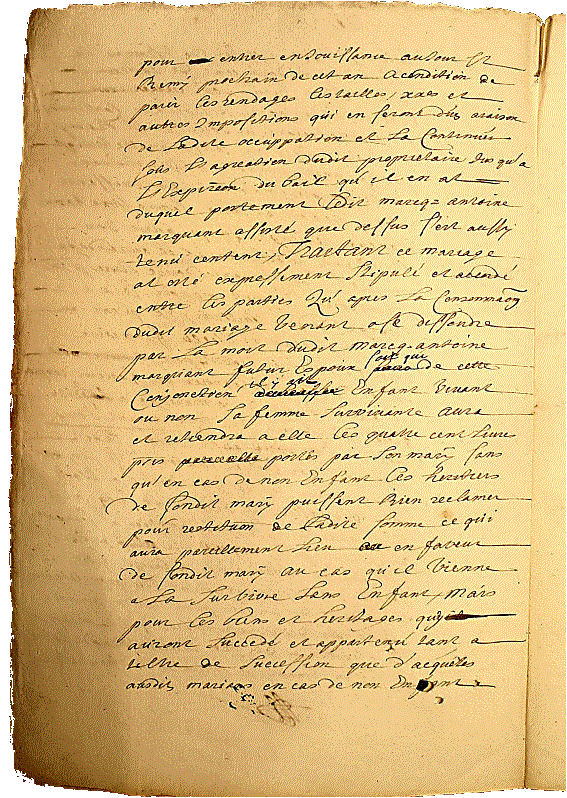 pour entrer en Jouissance au Jour St
Remy prochain de cet an a condition de
paier les rendages les tailles, xxes et
autres Impositions qui en seront dus araison
de ladite occuppation et La Continuer
sous L'agreation dudit proprietaire Jusqu'a
L'Expiraon du bail qu'il en at
duquel portement ledit marcq= antoine
marquant assisté que dessus s'est aussy
tenu content, Traitant ce mariage
at esté expressement stipulé et acordé
entre les parties Qu'apres La Consommaon
dudit mariage Venant a se dissoudre
par La mort dudit Marcq=antoine
marquant futur Epoux soit que de cette
Conjonction il y ait Enfant Vivant
ou non La femme Survivante aura
et retiendra a elle les quatre cent livres
portés par son mary sans
qu'en cas de non Enfant les heritiers
de sondit mary puissent Rien reclamer
pour restitution de ladite somme ce qui
aura pareillement lieu en faveur
de sondit mary au cas qu'il Vienne
a La Survivre sans Enfant, mais
pour les biens et heritages qu'
auront succedé et appartenu tant a
tiltre de succession que d'acquetes
ausdits mariants en cas de non Enfant